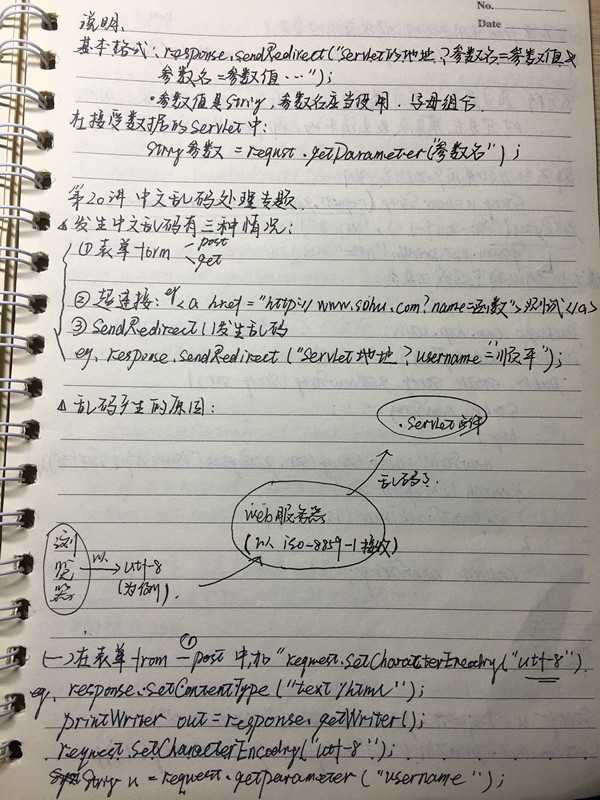 No.
Date
说明.
基本格式: response.sendRedirect("Servlet的地址?参数名=参数值&
参数名=参数值…");
·参数值是String, 参数名应当使用.字母组合.
在接受数据的Servlet中:
String 参数 = requst.getParameter("参数名");
第20讲 中文乱码处理专题
△发生中文乱码有三种情况:
①表单form post
get
②超连接: eg <a href="http://www.sohu.com?name=函数">测试</a>
③SendRedirect()发生乱码
eg, response.sendRedirect("Servlet地址?username="顺平");
△乱码产生的原因:
.Servlet
乱码了.
web服务器
(以 iso-8859-1接收)
浏览器
以
utf-8
(为例).
①
(一)在表单from—post中,加"request.setCharacterEncodry("utf-8")
eg, response.setContentType("text/html");
printWriter out=response.getWriter();
request.setCharacterEncodry("utf-8");
String u=request.getparameter("username");